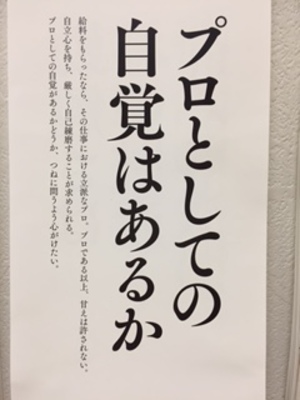 プロとしての
自覚はあるか
給料をもらったなら、その仕事における立派なプロ。プロである以上、甘えは許されない。
自立心を持ち、厳しく自己練磨することが求められる。
プロとしての自覚があるかどうか、つねに問うよう心がけたい。